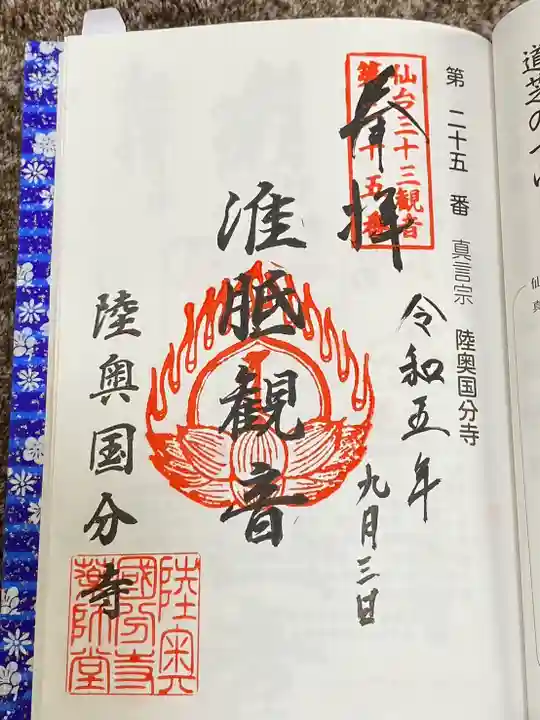 道芝の
第二十五番 真言宗 陸奥国分寺
仙台三十三観音
第二十五番
奉拝
令和五年
九月三日
准胝観音
陸奥国分寺
陸奥
國分寺
薬師堂